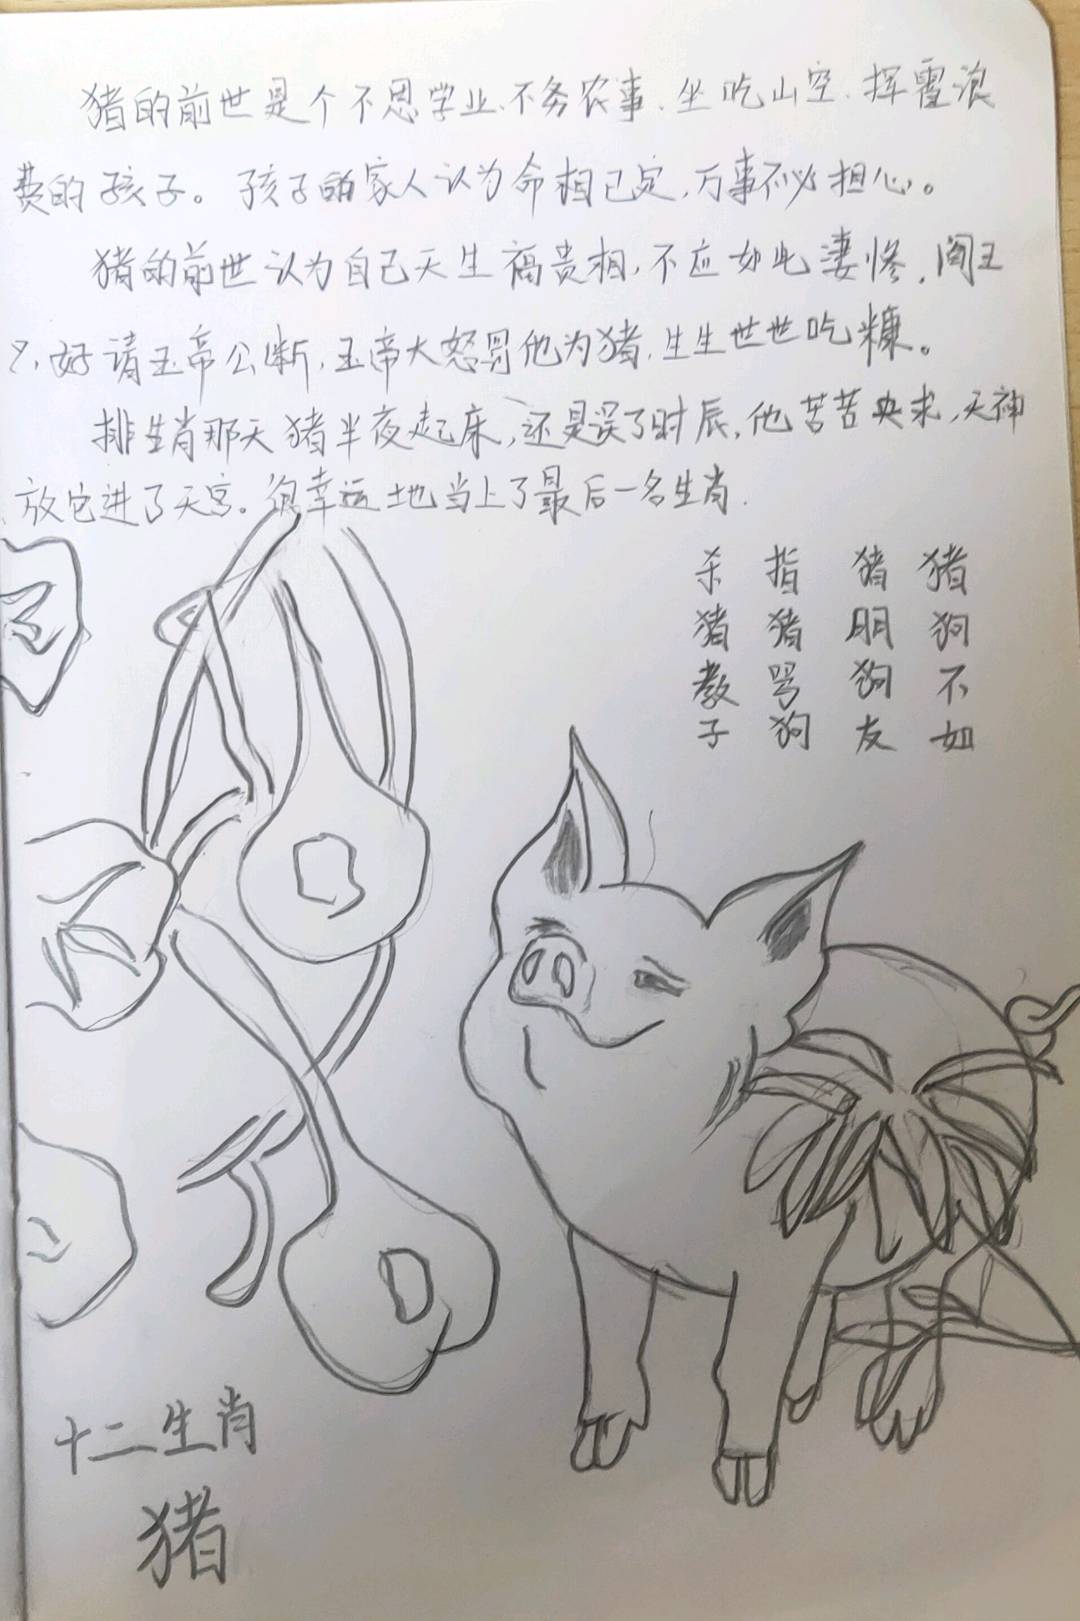 猪的前世是个不思学业、不务农事、坐吃山空、挥霍浪
费的孩子。孩子的家人认为命相已定,万事不必担心。
猪的前世认为自己天生福贵相,不应如此凄惨,阎王
只好请玉帝公断,玉帝大怒骂他为猪,生生世世吃糠。
排生肖那天猪半夜起床,还是误了时辰,他苦苦央求,天神
放它进了天宫。很幸运地当上了最后一名生肖.
猪狗不如
猪朋狗友
指猪骂狗
杀猪教子
十二生肖
猪